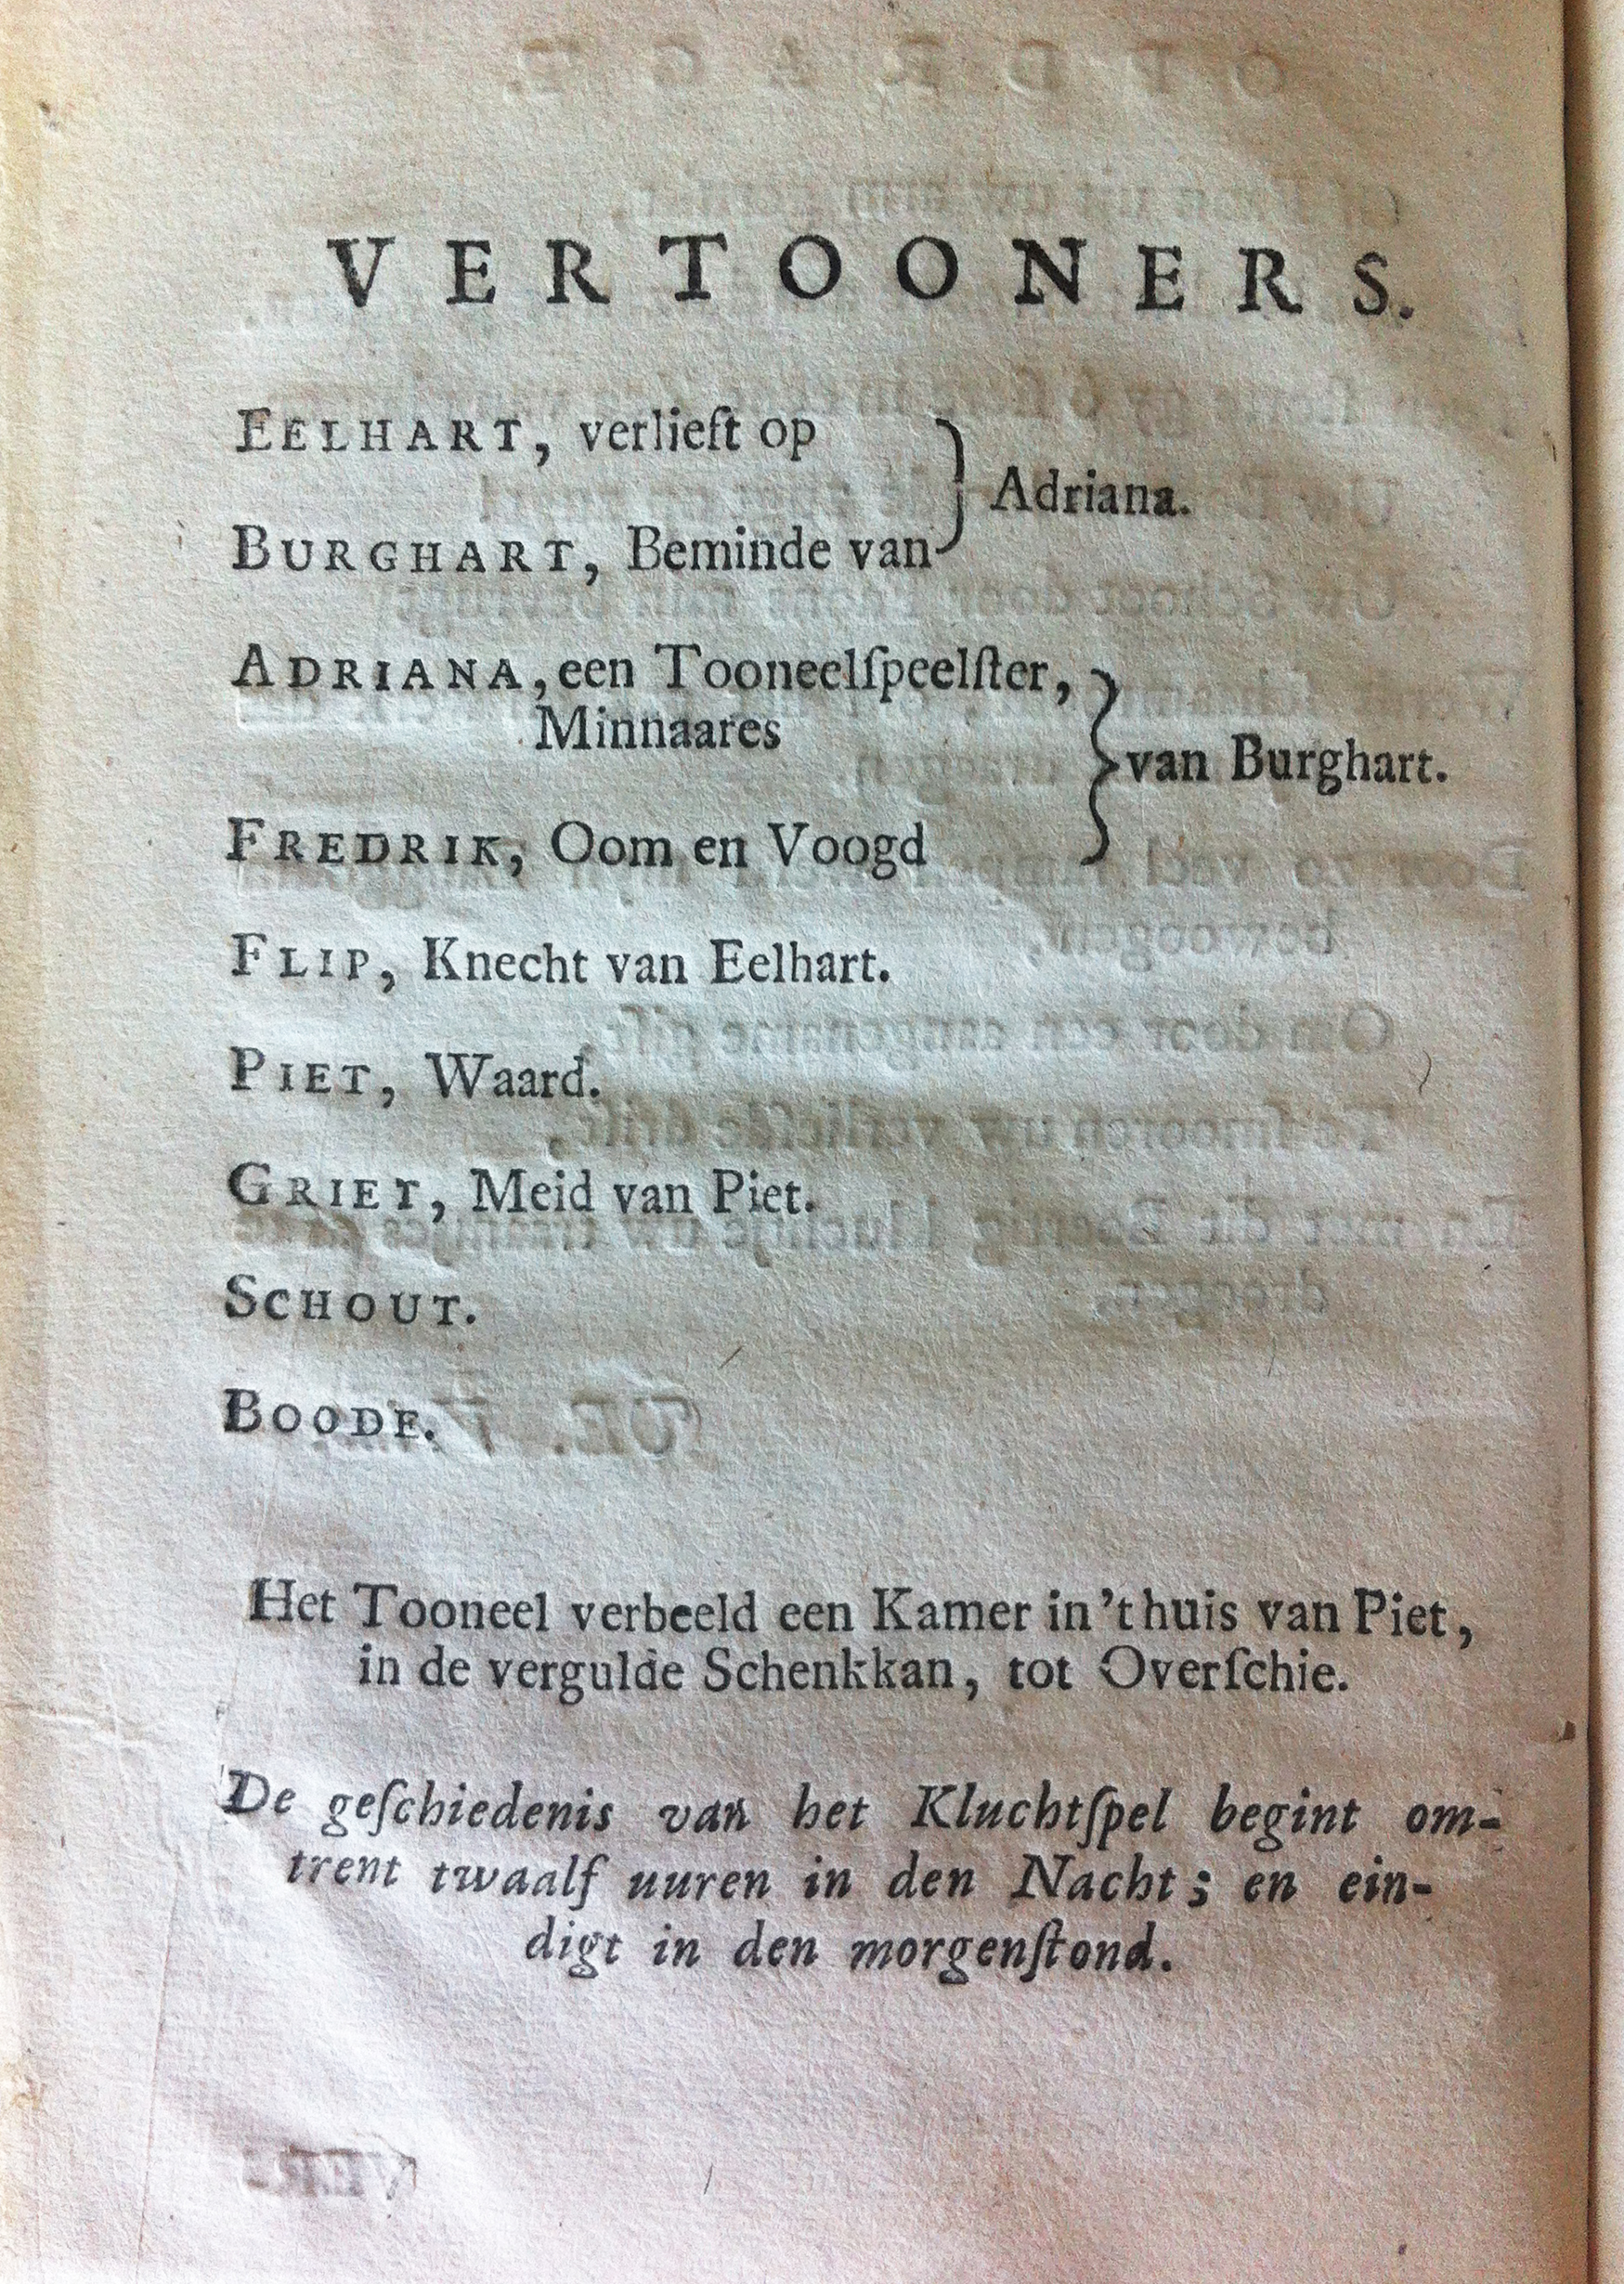 VERTOONERS.
EELHART, verlieft op
Adriana.
BURGHART, Beminde van
ADRIANA, een Tooneelſpeelſter,
Minnaares
van Burghart.
FREDRIK, Oom en Voogd
FLIP, Knecht van Eelhart.
PIET, Waard.
GRIET, Meid van Piet.
SCHOUT.
BOODE.
Het Tooneel verbeeld een Kamer in 't huis van Piet,
in de vergulde Schenkkan, tot Overſchie.
De geſchiedenis van het Kluchtſpel begint om-
trent twaalf uuren in den Nacht; en ein-
digt in den morgenſtond.